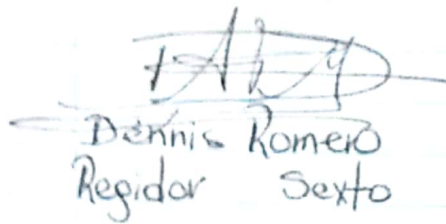 Dennis Romero
Regidor Sexto